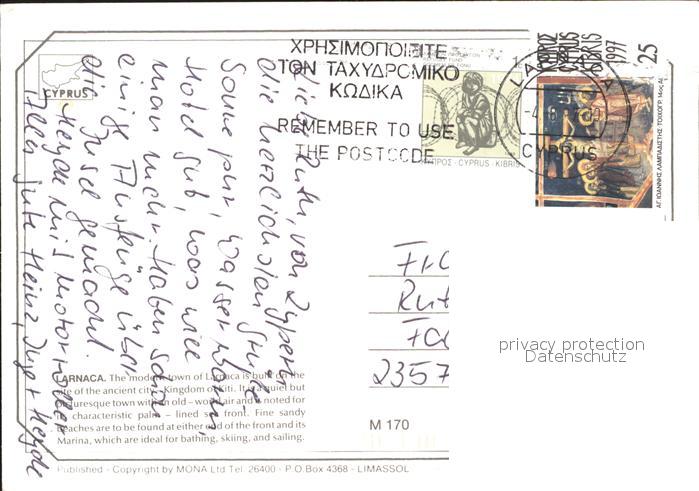 ΧΡΗΣΙΜΟΠΟΙΕΙΤΕ
ΤΟΝ ΤΑΧΥΔΡΟΜΙΚΟ
ΚΩΔΙΚΑ
REMEMBER TO USE
THE POSTCODE
ΚΥΠΡΟΣ · CYPRUS · KIBRIS
1997
25
CYPRUS
ΑΓ. ΙΩΑΝΝΗΣ ΛΑΜΠΑΔΙΣΤΗΣ
CYPRUS
Ruth, von Zypern
die herzlichsten Grüße.
Sonne pur, Wasser warm,
Hotel gut, was will
man mehr. Haben schon
einige Ausflüge über
die Insel gemacht.
Heyde mit Motorroller
Alles gute Heinz, Inge + Heyde
2357
privacy protection
Datenschutz
LARNACA. The modern town of Larnaca is built on the
site of the ancient city - Kingdom of Kiti. It is a quiet but
picturesque town with an old - world air and is noted for
its characteristic palm - lined sea front. Fine sandy
beaches are to be found at either end of the front and its
Marina, which are ideal for bathing, skiing, and sailing.
M 170
Published - Copyright by MONA Ltd Tel. 26400 - P.O.Box 4368 - LIMASSOL